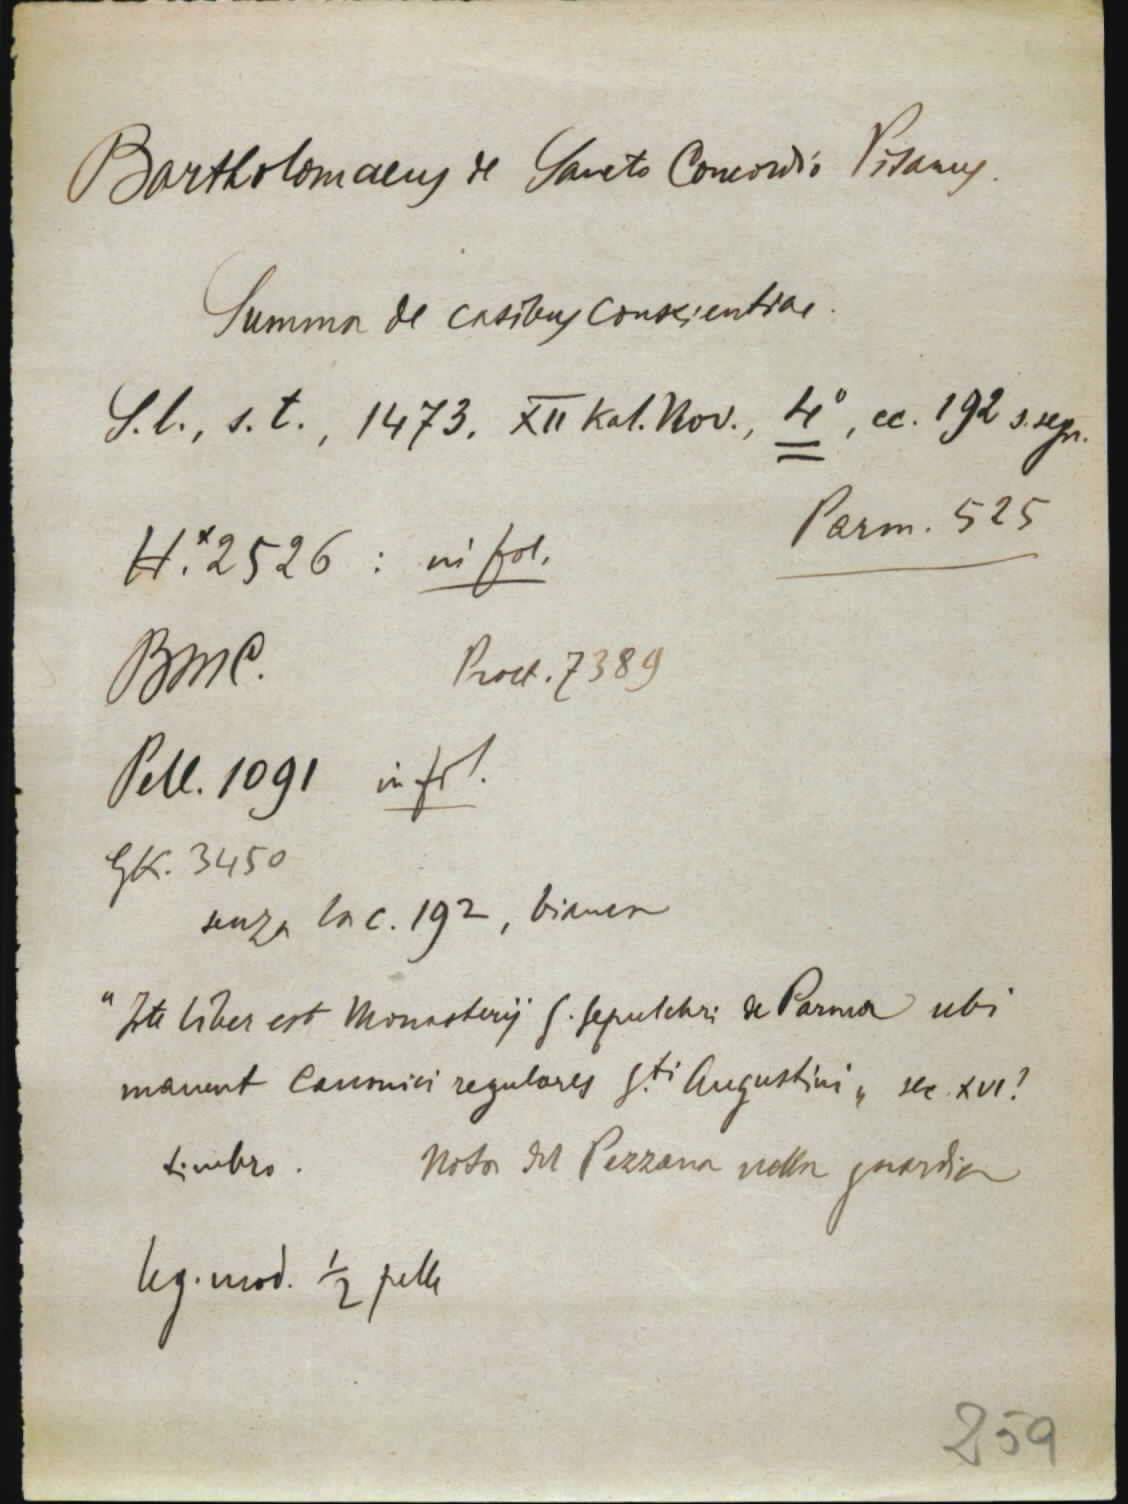 Bartholomaeus de Sancto Concordio Pisanus.
Summa de casibus conscientiae.
S.l., s.t., 1473. XII Kal. Nov., 4°, cc. 192 s.segn.
Parm. 525
H.*2526 : in fol.
BMC. Proct. 7389
Pell. 1091 in fol.
GK. 3450
senza la c. 192, bianca
"Iste liber est Monasterij S. Sepulchri de Parma ubi
manent Canonici regulares S.ti Augustini„ sec. XVI?
timbro. Nota del Pezzana nella guardia
leg. mod. ½ pelle
259